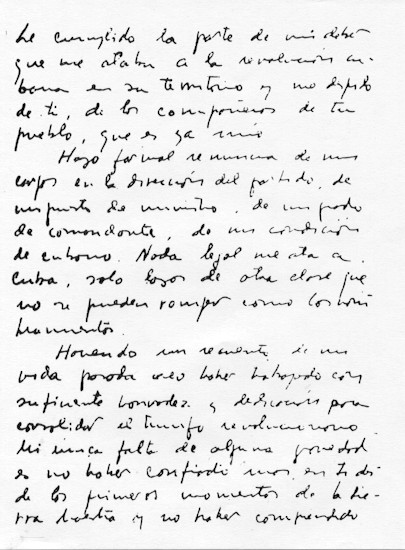 he cumplido la parte de mi deber
que me ataba a la revolución cu-
bana en su territorio y me despido
de ti, de los compañeros de tu
pueblo, que es ya mio
Hago formal renuncia de mis
cargos en la dirección del partido, de
mi puesto de ministro, de mi grado
de comandante, de mi condición
de cubano. Nada legal me ata a
Cuba, solo lazos de otra clase que
no se pueden romper como los nom
bramientos.
Haciendo un recuento de mi
vida pasada creo haber trabajado con
suficiente honradez y dedicación para
consolidar el triunfo revolucionario.
Mi unica falta de alguna gravedad
es no haber confiado mas en ti des
de los primeros momentos de la Sie-
rra Maestra y no haber comprendido